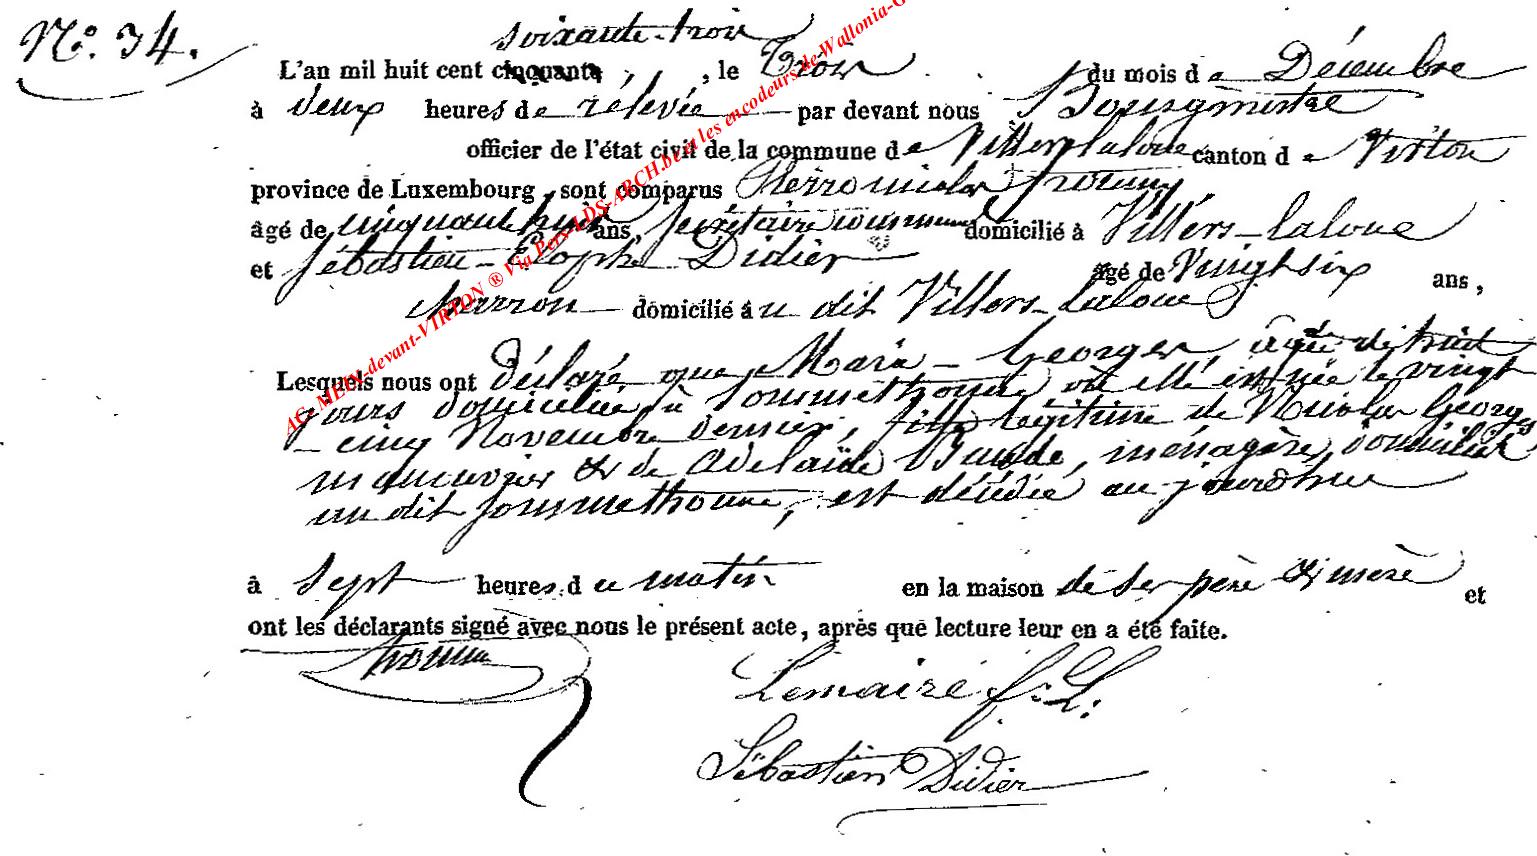 N.° 34.
soixante-trois
L'an mil huit cent cinquante, , le Trois du mois de Décembre
à deux heures de rélevée par devant nous Bourgmestre
officier de l'état civil de la commune de Villers laloue canton de Virton
province de Luxembourg, sont comparus Pierre nicolas
âgé de cinquante huit ans, secrétaire communal domicilié à Villers-laloue
et Sébastien-Elophe Didier âgé de Vingt six ans,
domicilié au dit Villers-laloue
Lesquels nous ont déclaré que Marie Georges, agée de huit
jours domiciliée à Sommethonne où elle est née le vingt
-cinq Novembre dernier, fille légitime de Nicolas Georges
manouvrier & de Adelaïde ménagère, domiciliés
au dit Sommethonne, est décédée au jourd'hui
à sept heures du matin en la maison de ses père & mère et
ont les déclarants signé avec nous le présent acte, après que lecture leur en a été faite.
Lemaire f. L.
Sébastien Didier
AG-MEIX-devant-VIRTON ® Via Pers-LDS-ARCH.be et les encodeurs de Wallonia-G